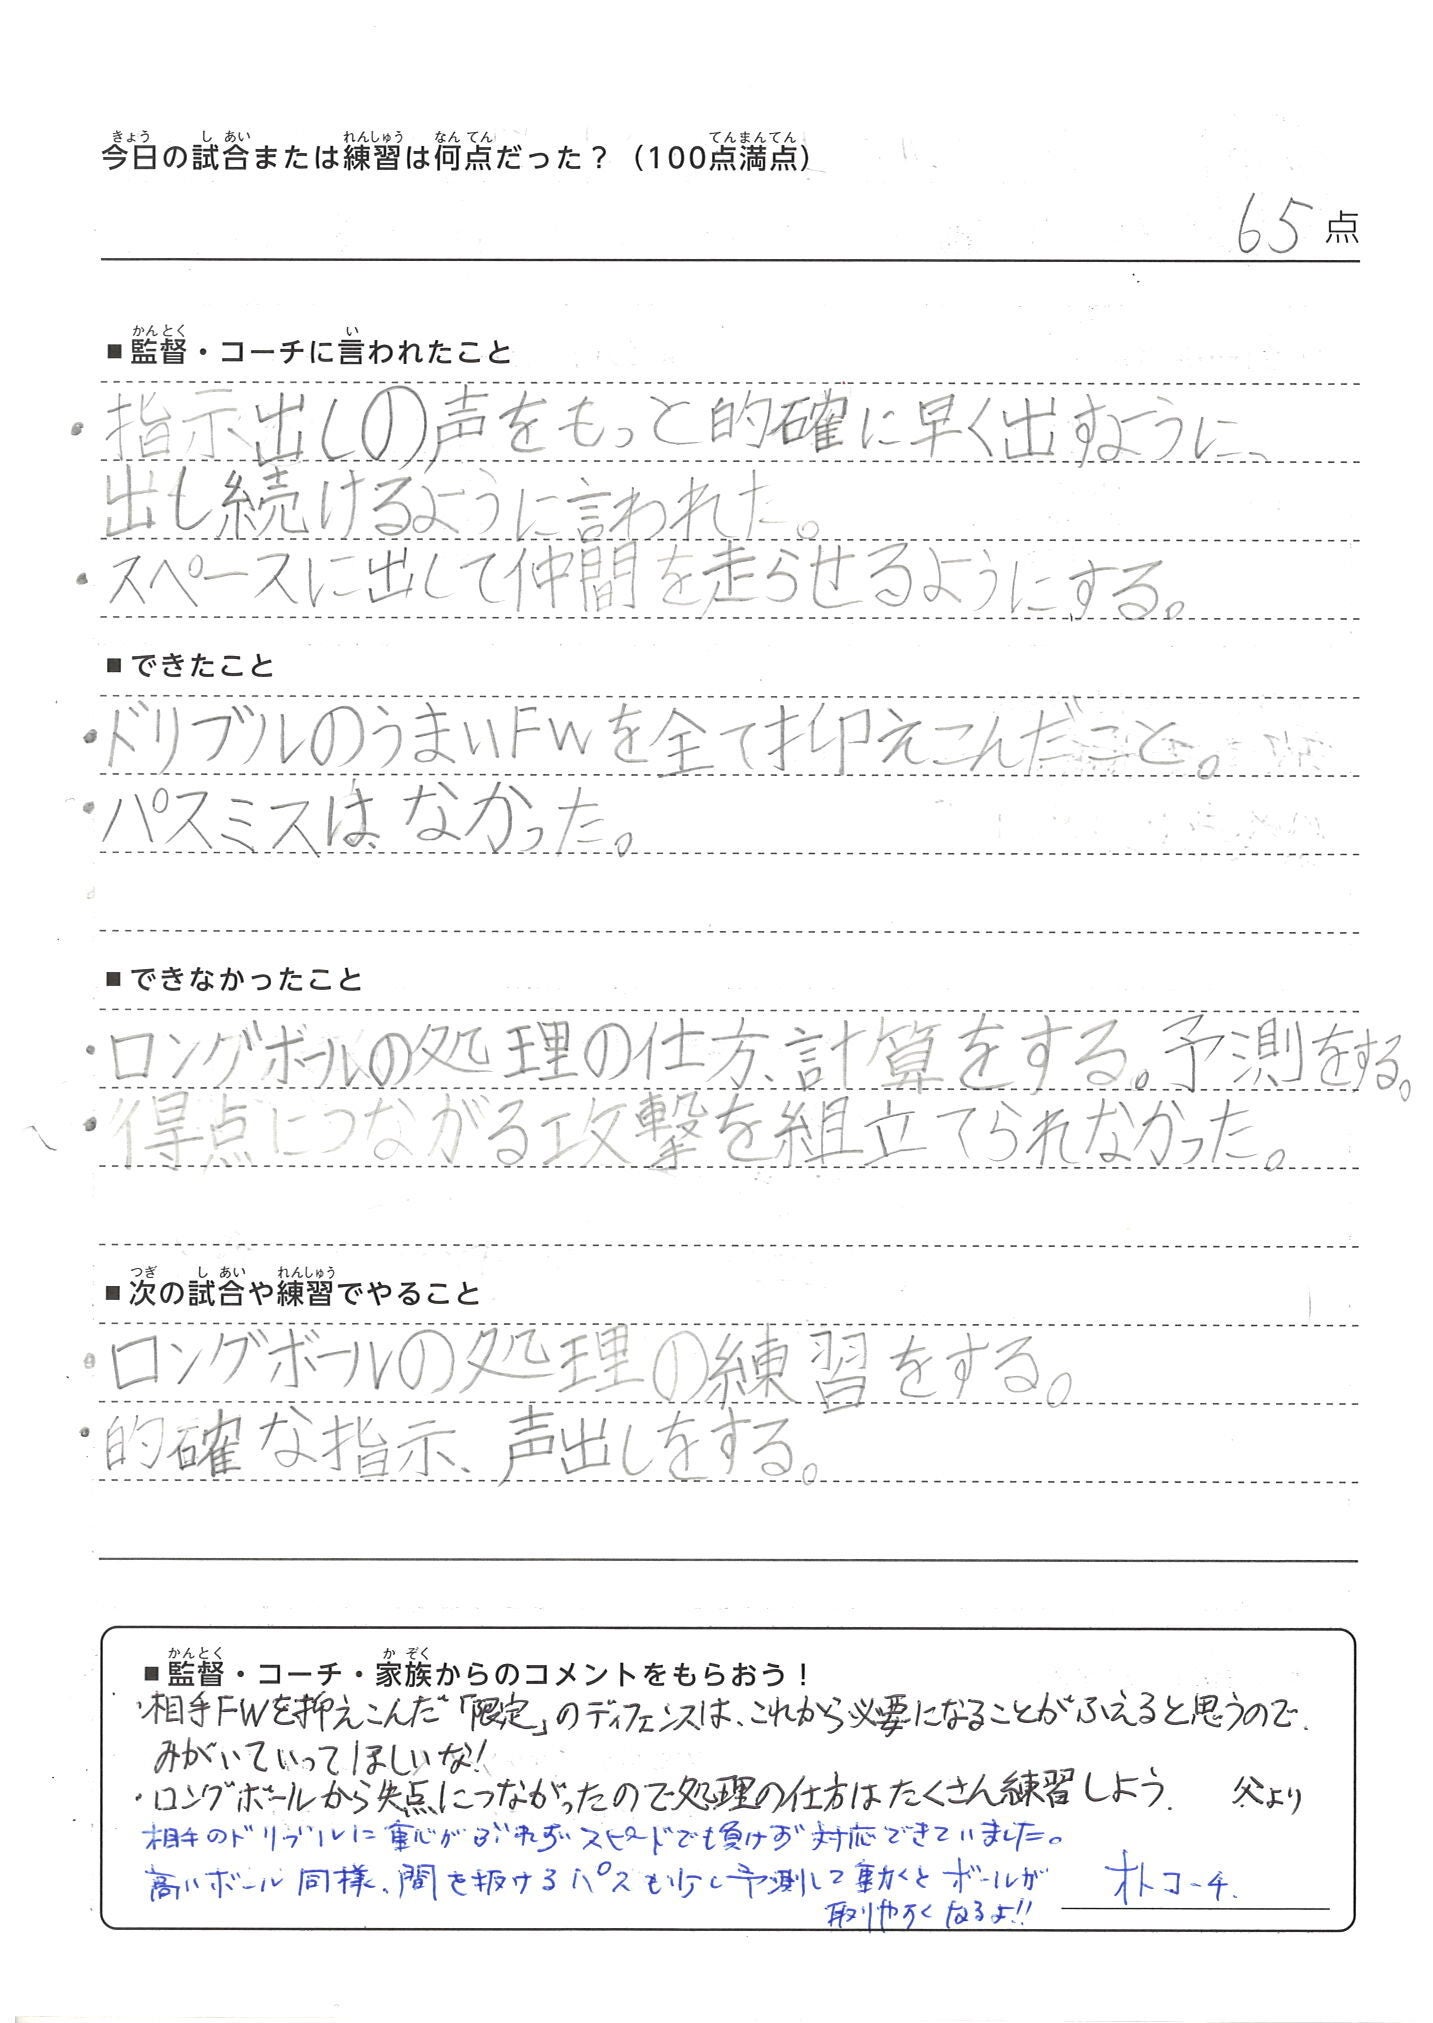 今日の試合または練習は何点だった？（100点満点）
65点
■監督・コーチに言われたこと
・指示出しの声をもっと的確に早く出すように、
出し続けるように言われた。
・スペースに出して仲間を走らせるようにする。
■できたこと
・ドリブルのうまいFWを全て抑えこんだこと。
・パスミスは、なかった。
■できなかったこと
・ロングボールの処理の仕方、計算をする。予測をする。
・得点につながる攻撃を組立てられなかった。
■次の試合や練習でやること
・ロングボールの処理の練習をする。
・的確な指示、声出しをする。
■監督・コーチ・家族からのコメントをもらおう！
・相手FWを抑えこんだ「限定」のディフェンスは、これから必要になることがふえると思うので、
みがいていってほしいな！
・ロングボールから失点につながったので処理の仕方はたくさん練習しよう。 父より
相手のドリブルに重心がぶれずスピードでも負けず対応できていました。
高いボール同様、間を抜けるパスも少し予測して動くとボールが
取りやすくなるよ!! 朴コーチ.